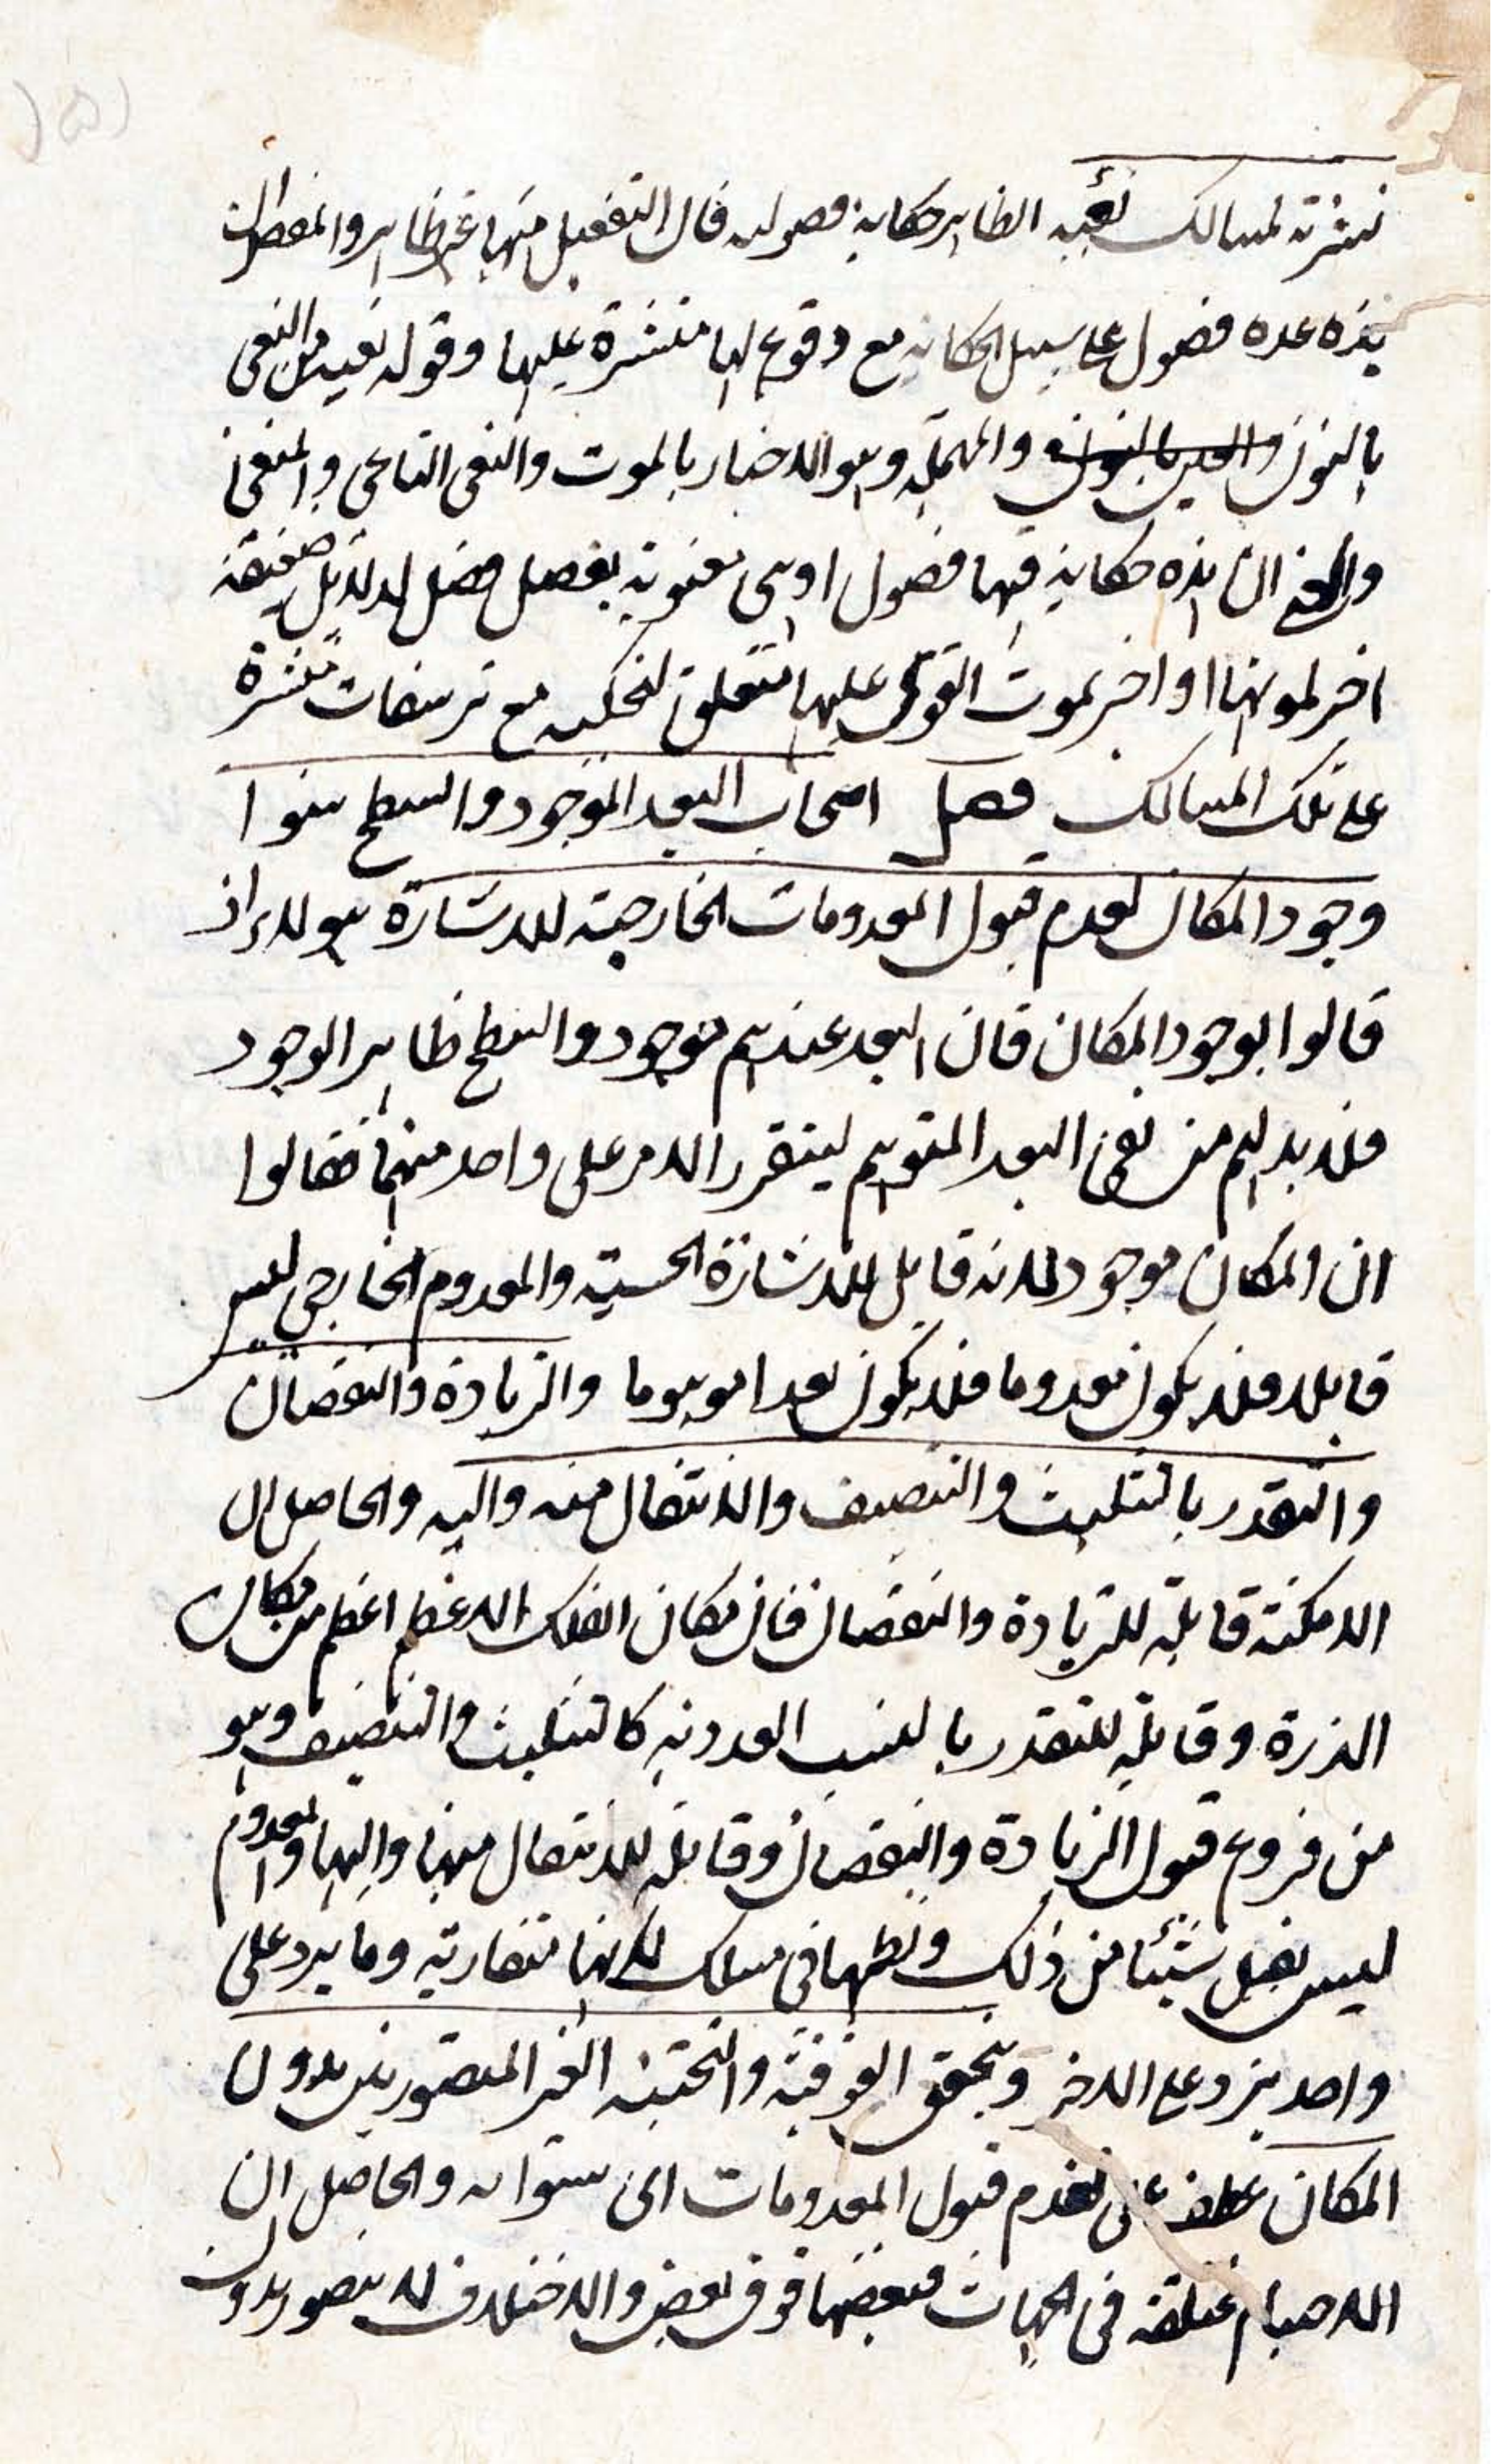 نشرته لمسالك نعيه الظاهر حكاية فصوله فان التفعيل منها غير ظاهر والمفصلات
هذه عده فصول على سبيل الحكاية مع وقوع لها منتشرة عليها وقوله نعيه من النعى
بالنون والعين المهملة وهو الاخبار بالموت والنعى الناعى والمنعى
ان هذه حكاية فيها فصول اوهى معنوية بفصل فصل لدلائل ضعيفة
اخر لموتها او اخبر بموت القوى عليها متعلق لتحكيه مع منتشرة
على تلك المسالك فصل اصحاب البعد الموجود والسطح بينوا
وجود المكان لعدم قبول المعدومات الخارجية للاشارة هولاء اذ
قالوا بوجود المكان فان البعد عندهم موجود والسطح ظاهر الوجود
فلابد لهم من نفى البعد المتوهم ليتقرر الامر على واحد منهما فقالوا
ان المكان موجود لانه قابل للاشارة الحسية والمعدوم الخارجى ليس
قابلا فلا يكون معدوما فلا يكون بعدا موهوما والزيادة والنقصان
والتقدر بالتثليث والتنصيف والانتقال منه واليه والحاصل ان
الامكنة قابلة للزيادة والنقصان فان مكان الفلك الاعظم اعظم من مكان
الذرة وقابلة للتقدر بالنسب العددية كالتثليث والتنصيف وهو
من فروع قبول الزيادة والنقصان وقابلة للانتقال منها واليها والمعدوم
ليس يقبل شيئا من ذلك ونظمها فى مسلك لانها متقاربة وما يرد على
واحد يرد على الاخر وتحقق الفوقية والتحتية الغير المتصورين بدون
المكان عطف على لعدم قبول المعدومات اى بينوا به والحاصل ان
الاجسام مختلفة فى الجهات فبعضها فوق بعض والاختلاف لا يتصور بدون